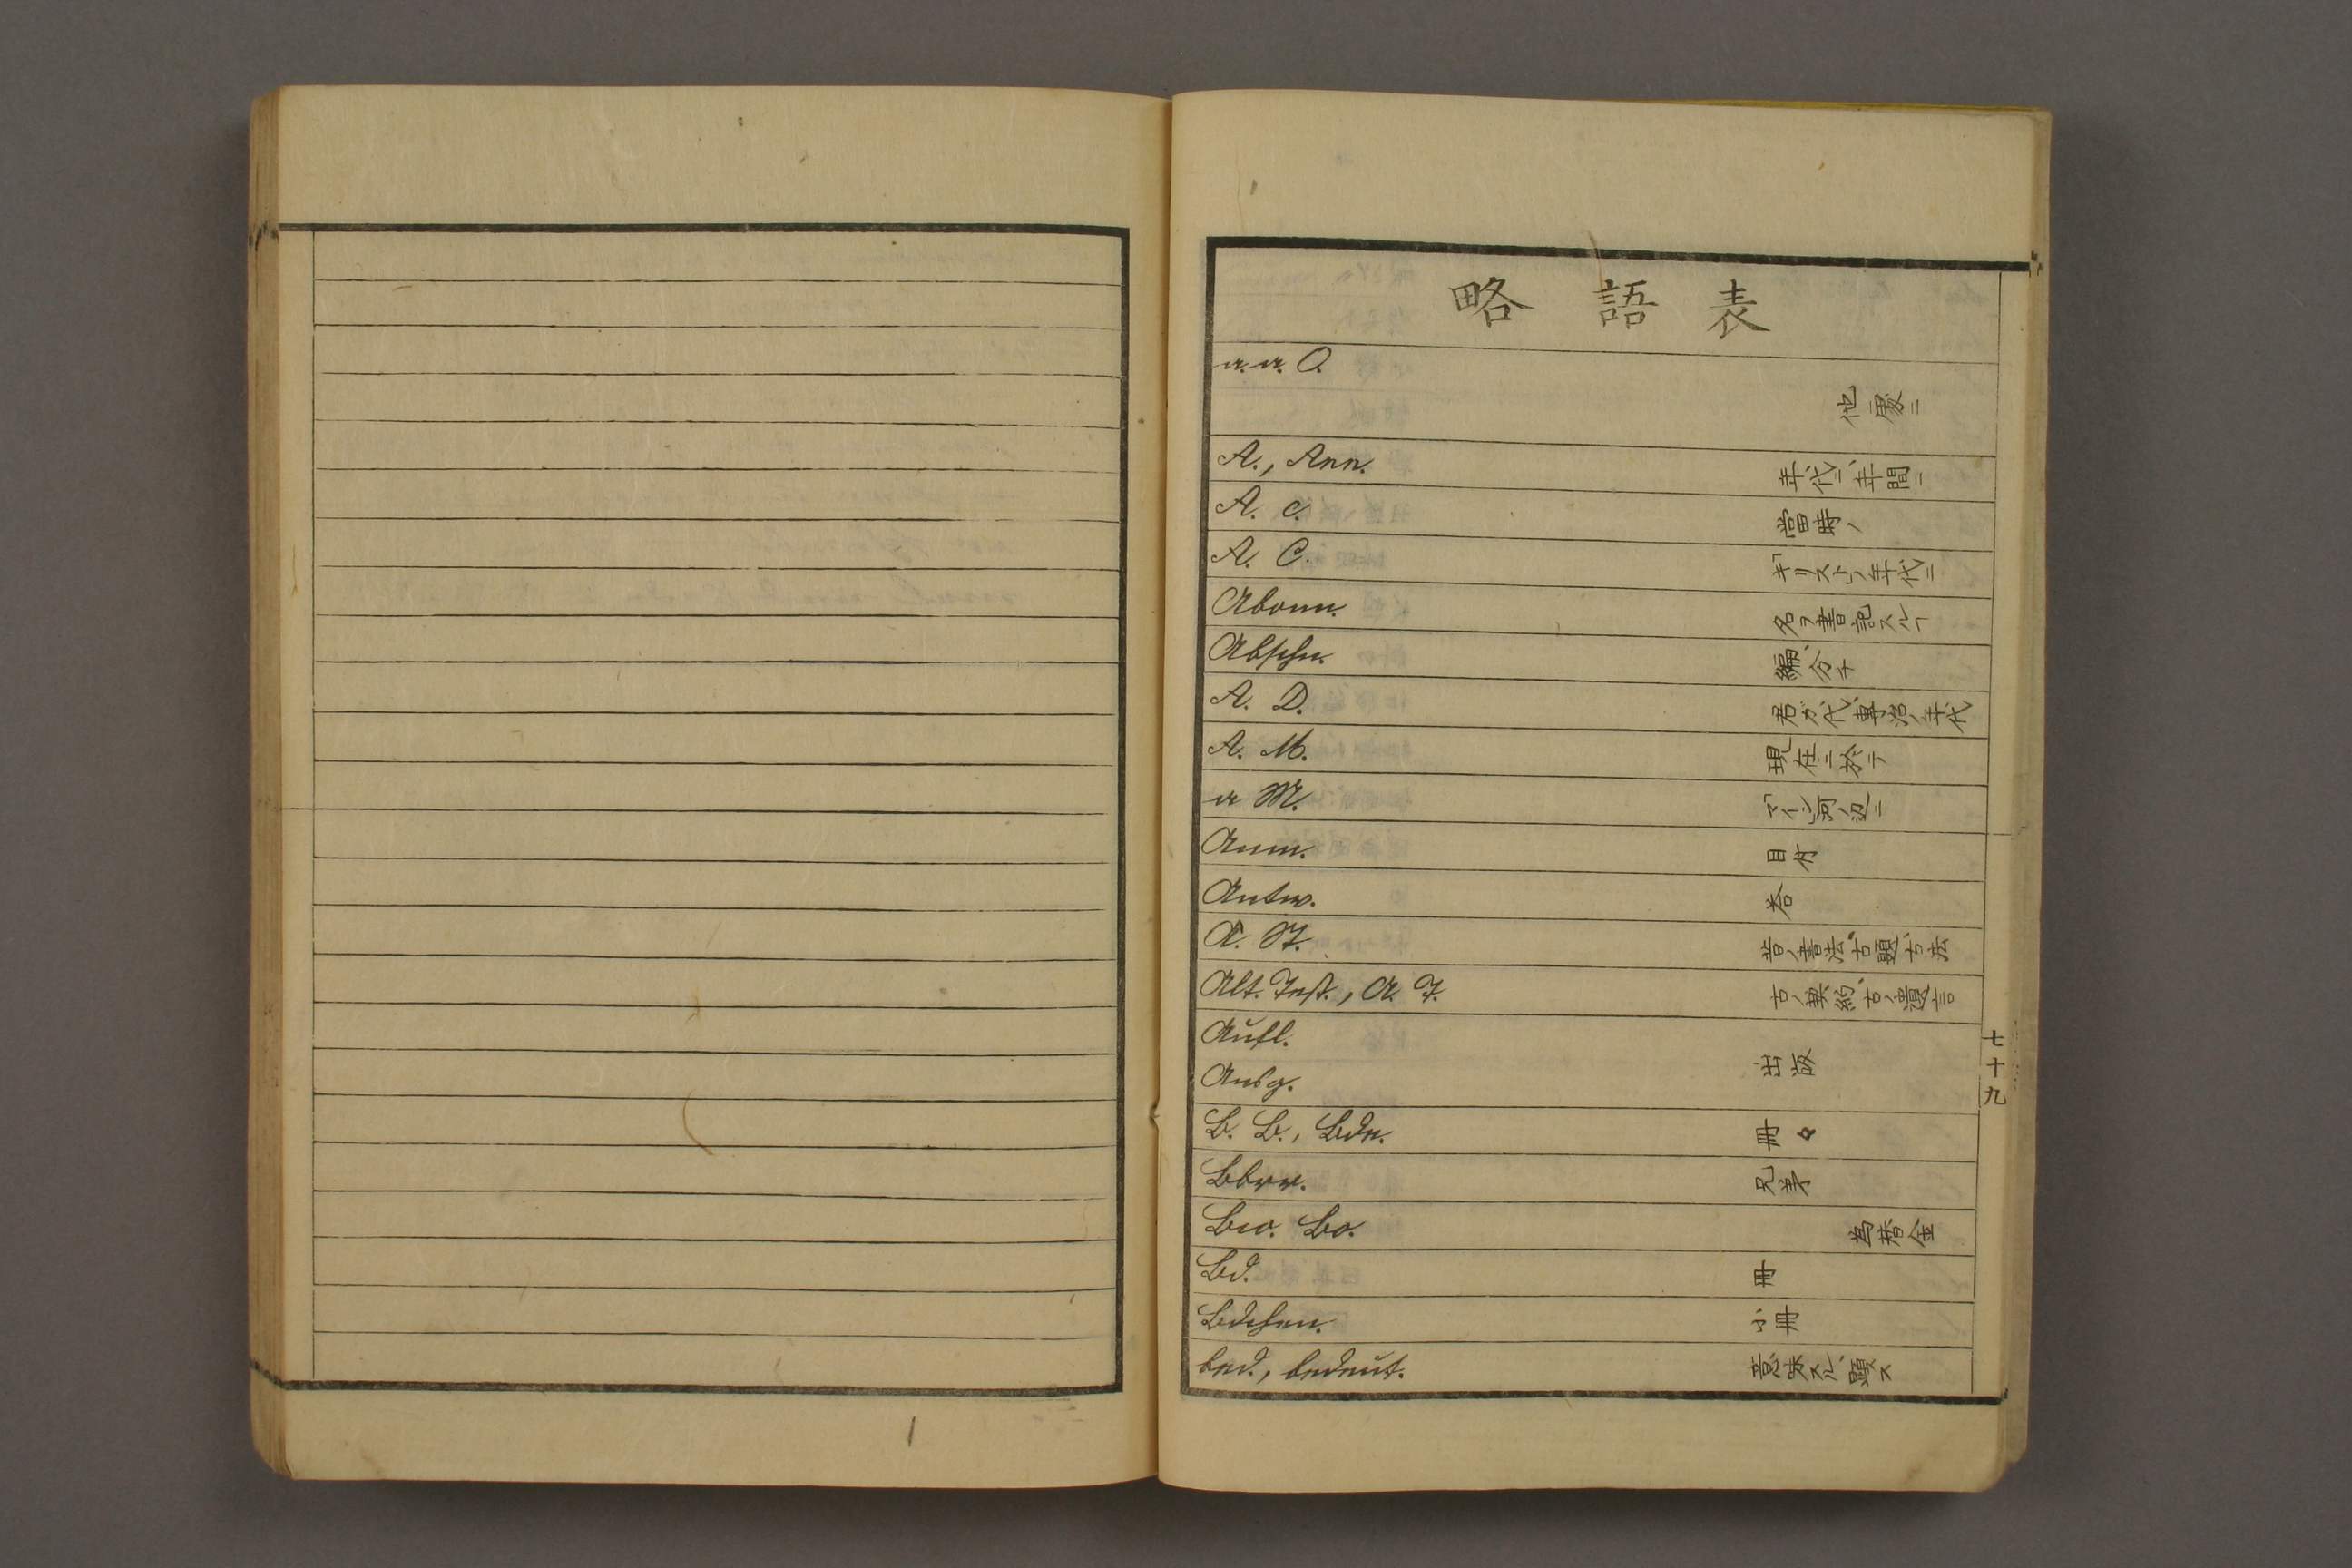 略語表
a. a. O. 他處ニ
A., Ann. 年代ニ、年間ニ
A. c. 當時ノ
A. C. 「キリスト」ノ年代ニ
Abonn. 名ヲ書記スルヿ
Abschn. 編、分チ
A. D. 君ガ代、專治ノ年代
A. M. 現在ニ於テ
a M. 「マイン」河ノ辺ニ
Anm. 目付
Antw. 答
A. St. 昔ノ書法、古題、古法
Alt. Test., A. T. 古ノ契約、古ノ遺言
Aufl.
Ausg. 出版
B. B., Bde. 冊々
Bbrr. 兄弟
Bco. Bo. 為替金
Bd. 冊
Bdchen. 小冊
bed., bedeut. 意味スル、顕ス
七十九